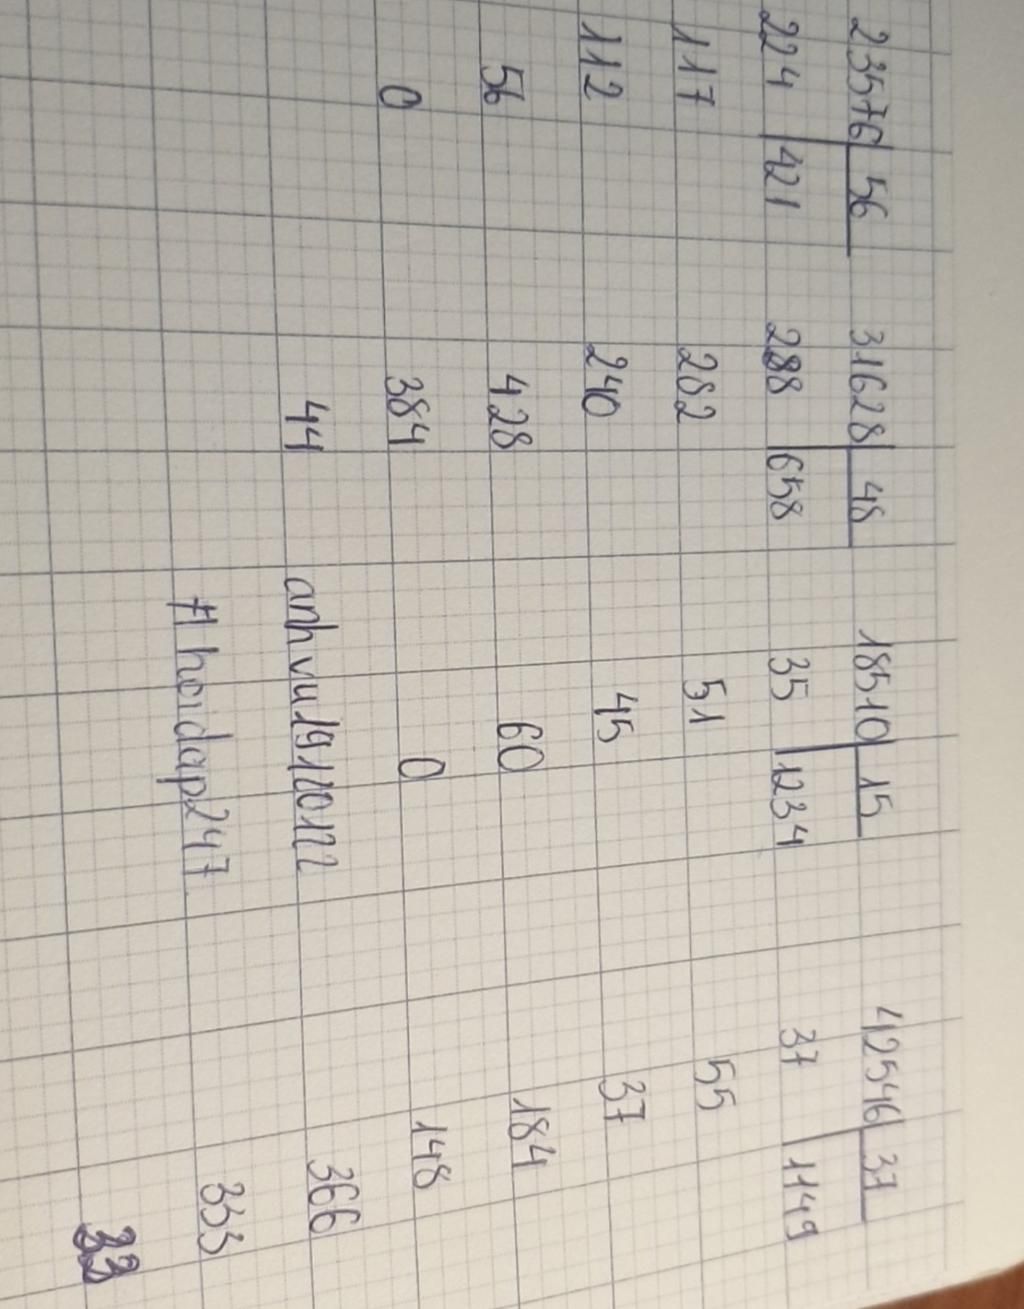 23576 56 31628 48 18510 15 42546 37
224 421 288 658 35 1234 37 1149
117 282 51 55
112 240 45 37
56 428 60 184
0 384 0 148
44 anhvu19120122 366
#hoidap247 333
33